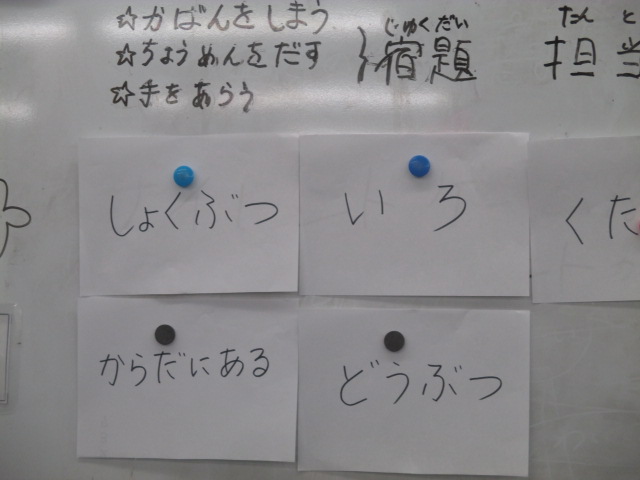 ☆かばんをしまう
☆ちょうめんをだす
☆手をあらう
じゅくだい
宿題
たん と
担当
しょくぶつ
いろ
くた
からだにある
どうぶつ